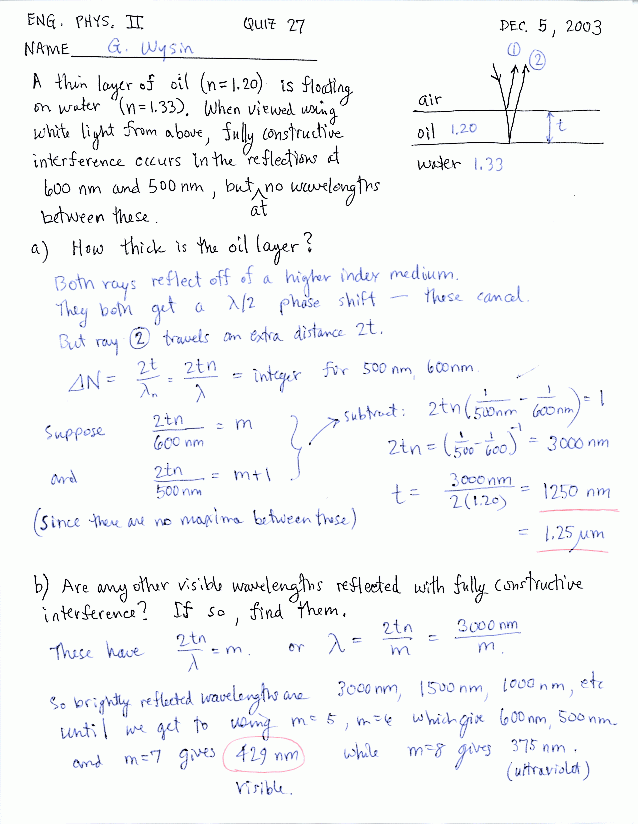 ENG. PHYS. II QUIZ 27 DEC. 5, 2003
NAME G. Wysin
A thin layer of oil (n=1.20) is floating
on water (n=1.33). When viewed using
white light from above, fully constructive
interference occurs in the reflections at
600 nm and 500 nm, but ^ no wavelengths
at
between these.
① ②
air
oil 1.20 t
water 1.33
a) How thick is the oil layer?
Both rays reflect off of a higher index medium.
They both get a λ/2 phase shift — these cancel.
But ray ② travels an extra distance 2t.
ΔN = 2t/λn = 2tn/λ = integer for 500 nm, 600nm.
Suppose 2tn/600 nm = m
and 2tn/500 nm = m+1
(since there are no maxima between these)
subtract: 2tn(1/500nm - 1/600nm) = 1
2tn = (1/500 - 1/600)^-1 = 3000 nm
t = 3000nm/2(1.20) = 1250 nm
= 1.25 μm
b) Are any other visible wavelengths reflected with fully constructive
interference? If so, find them.
These have 2tn/λ = m. or λ = 2tn/m = 3000nm/m.
So brightly reflected wavelengths are 3000nm, 1500nm, 1000nm, etc
until we get to using m=5, m=6 which give 600nm, 500nm.
and m=7 gives 429 nm while m=8 gives 375 nm.
visible. (ultraviolet)